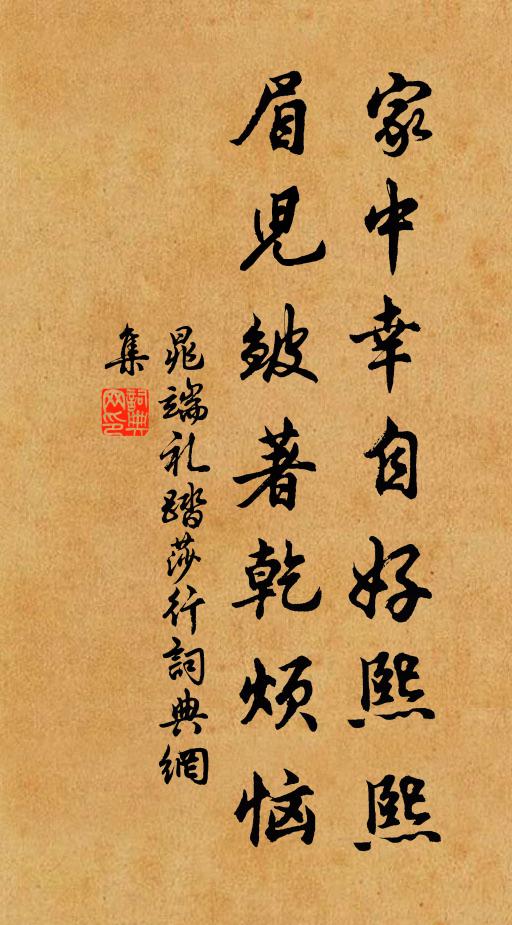 家中幸自好熙熙
眉儿皱著乾烦恼
晁端礼踏莎行詞典網
集
詞典网印